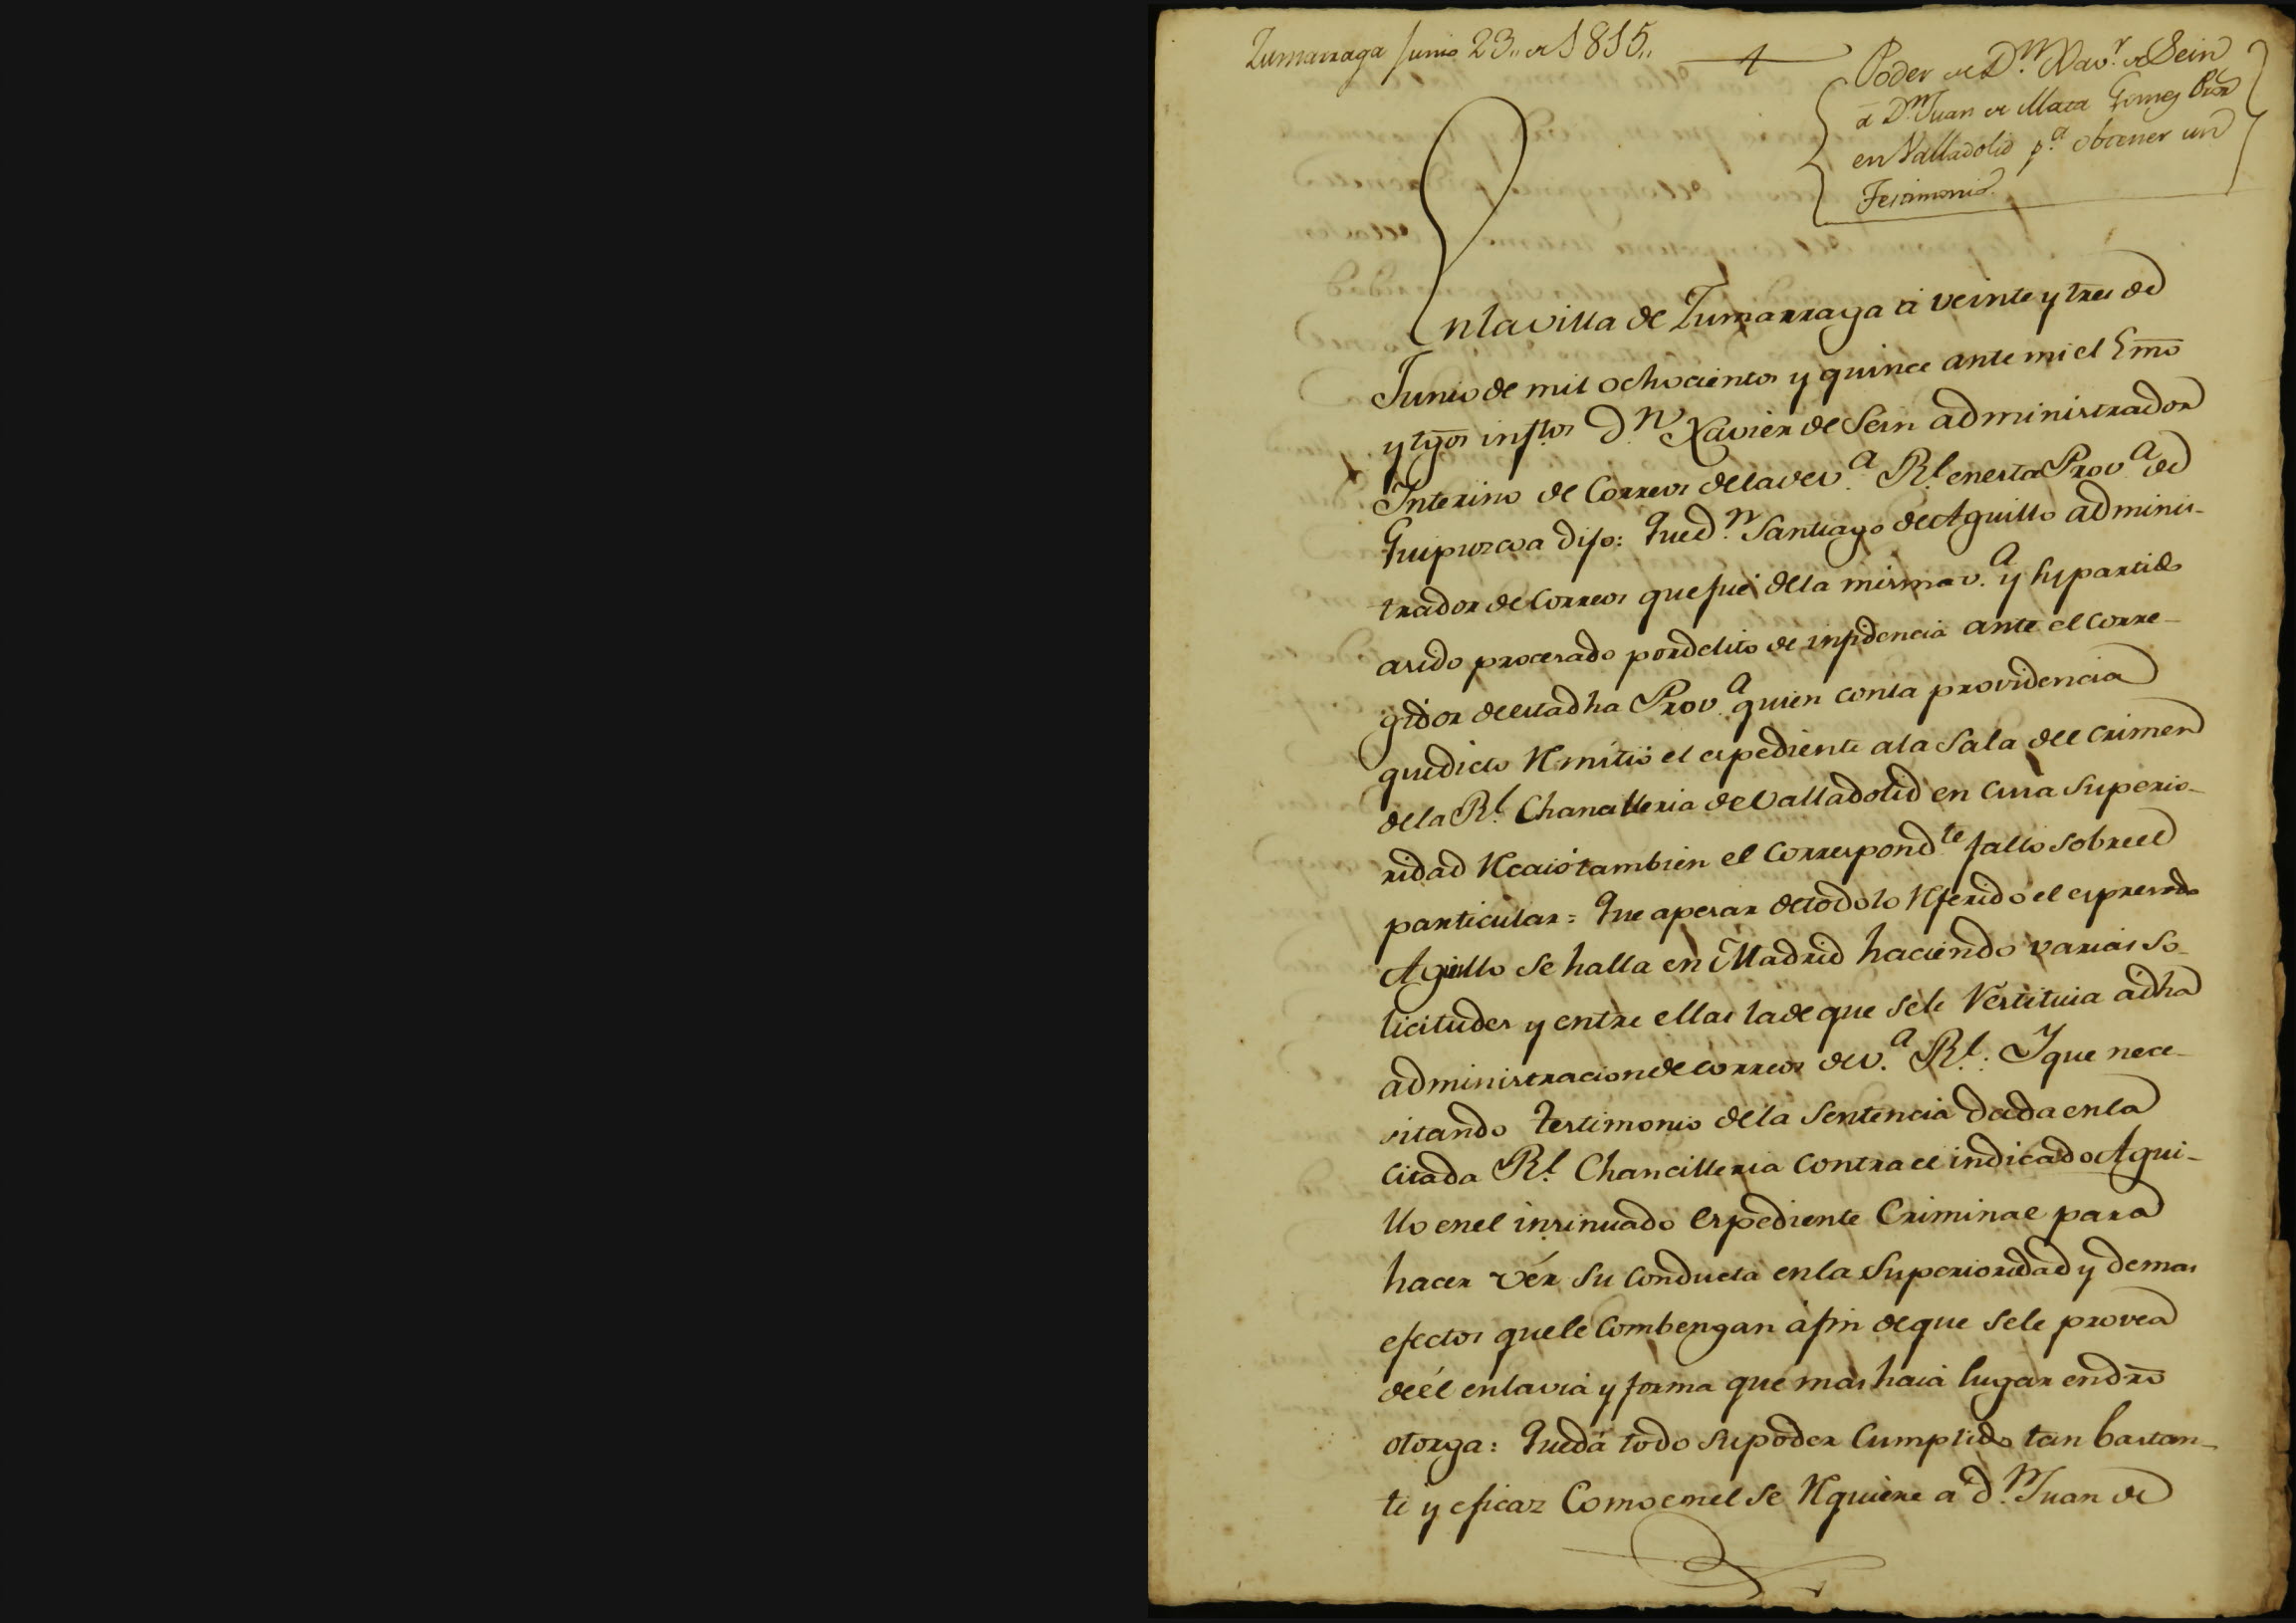 Zumarraga Junio 23,, de 1815,,
Poder de D.n Xav.r de Sein
a D.n Juan de Mata Gomez Pror
en Valladolid p.a obtener un
Testimonio.
En la villa de Zumarraga á veinte y tres de
Junio de mil ochocientos y quince ante mi el Esno
y tgos infros D.n Xavier de Sein administrador
Interino de Correos de la de v.a R.l en esta Prov.a de
Guipuzcoa dijo: Que d.n Santiago de Aguillo adminis-
trador de Correos que fué de la misma v.a y su partido
a sido procesado por delito de infidencia ante el Corre-
gidor de esta dha Prov.a quien con la providencia
que dicto Remitió el espediente a la Sala del Crimen
de la R.l Chancilleria de Valladolid en cuia Superio-
ridad Recaió tambien el Correspond.te fallo sobre el
particular = Que apesar de todo lo Referido el espresado
Aguillo se halla en Madrid haciendo varias so-
licitudes y entre ellas la de que se le Restituia a dha
administracion de correos de v.a R.l: Y que nece-
sitando testimonio de la Sentencia dada en la
citada R.l Chancilleria contra el indicado Agui-
llo en el insinuado Espediente Criminal para
hacer vér su conducta en la Superioridad y demas
efectos que le Combengan á fin de que se le provea
de él en la via y forma que mas haia lugar en dro
otorga: Que dá todo su poder Cumplido tan bastan-
te y eficaz Como en el se Requiere a d.n Juan de